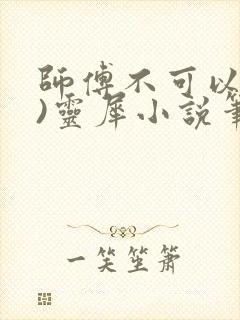 師傅不可以
)靈犀小說筆
一笑笙簫